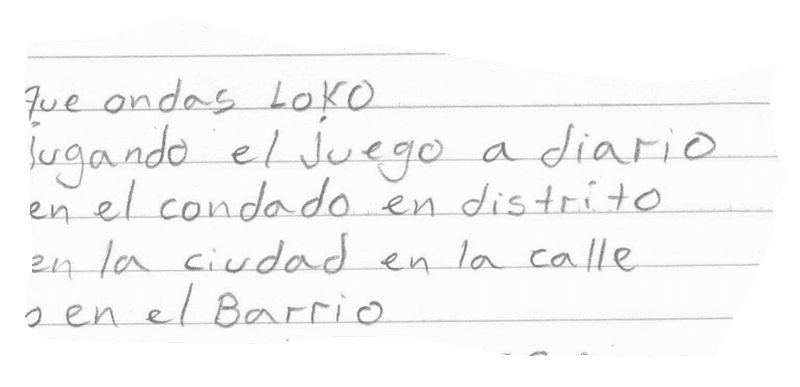 que ondas LoKO
jugando el juego a diario
en el condado en distrito
en la ciudad en la calle
o en el Barrio